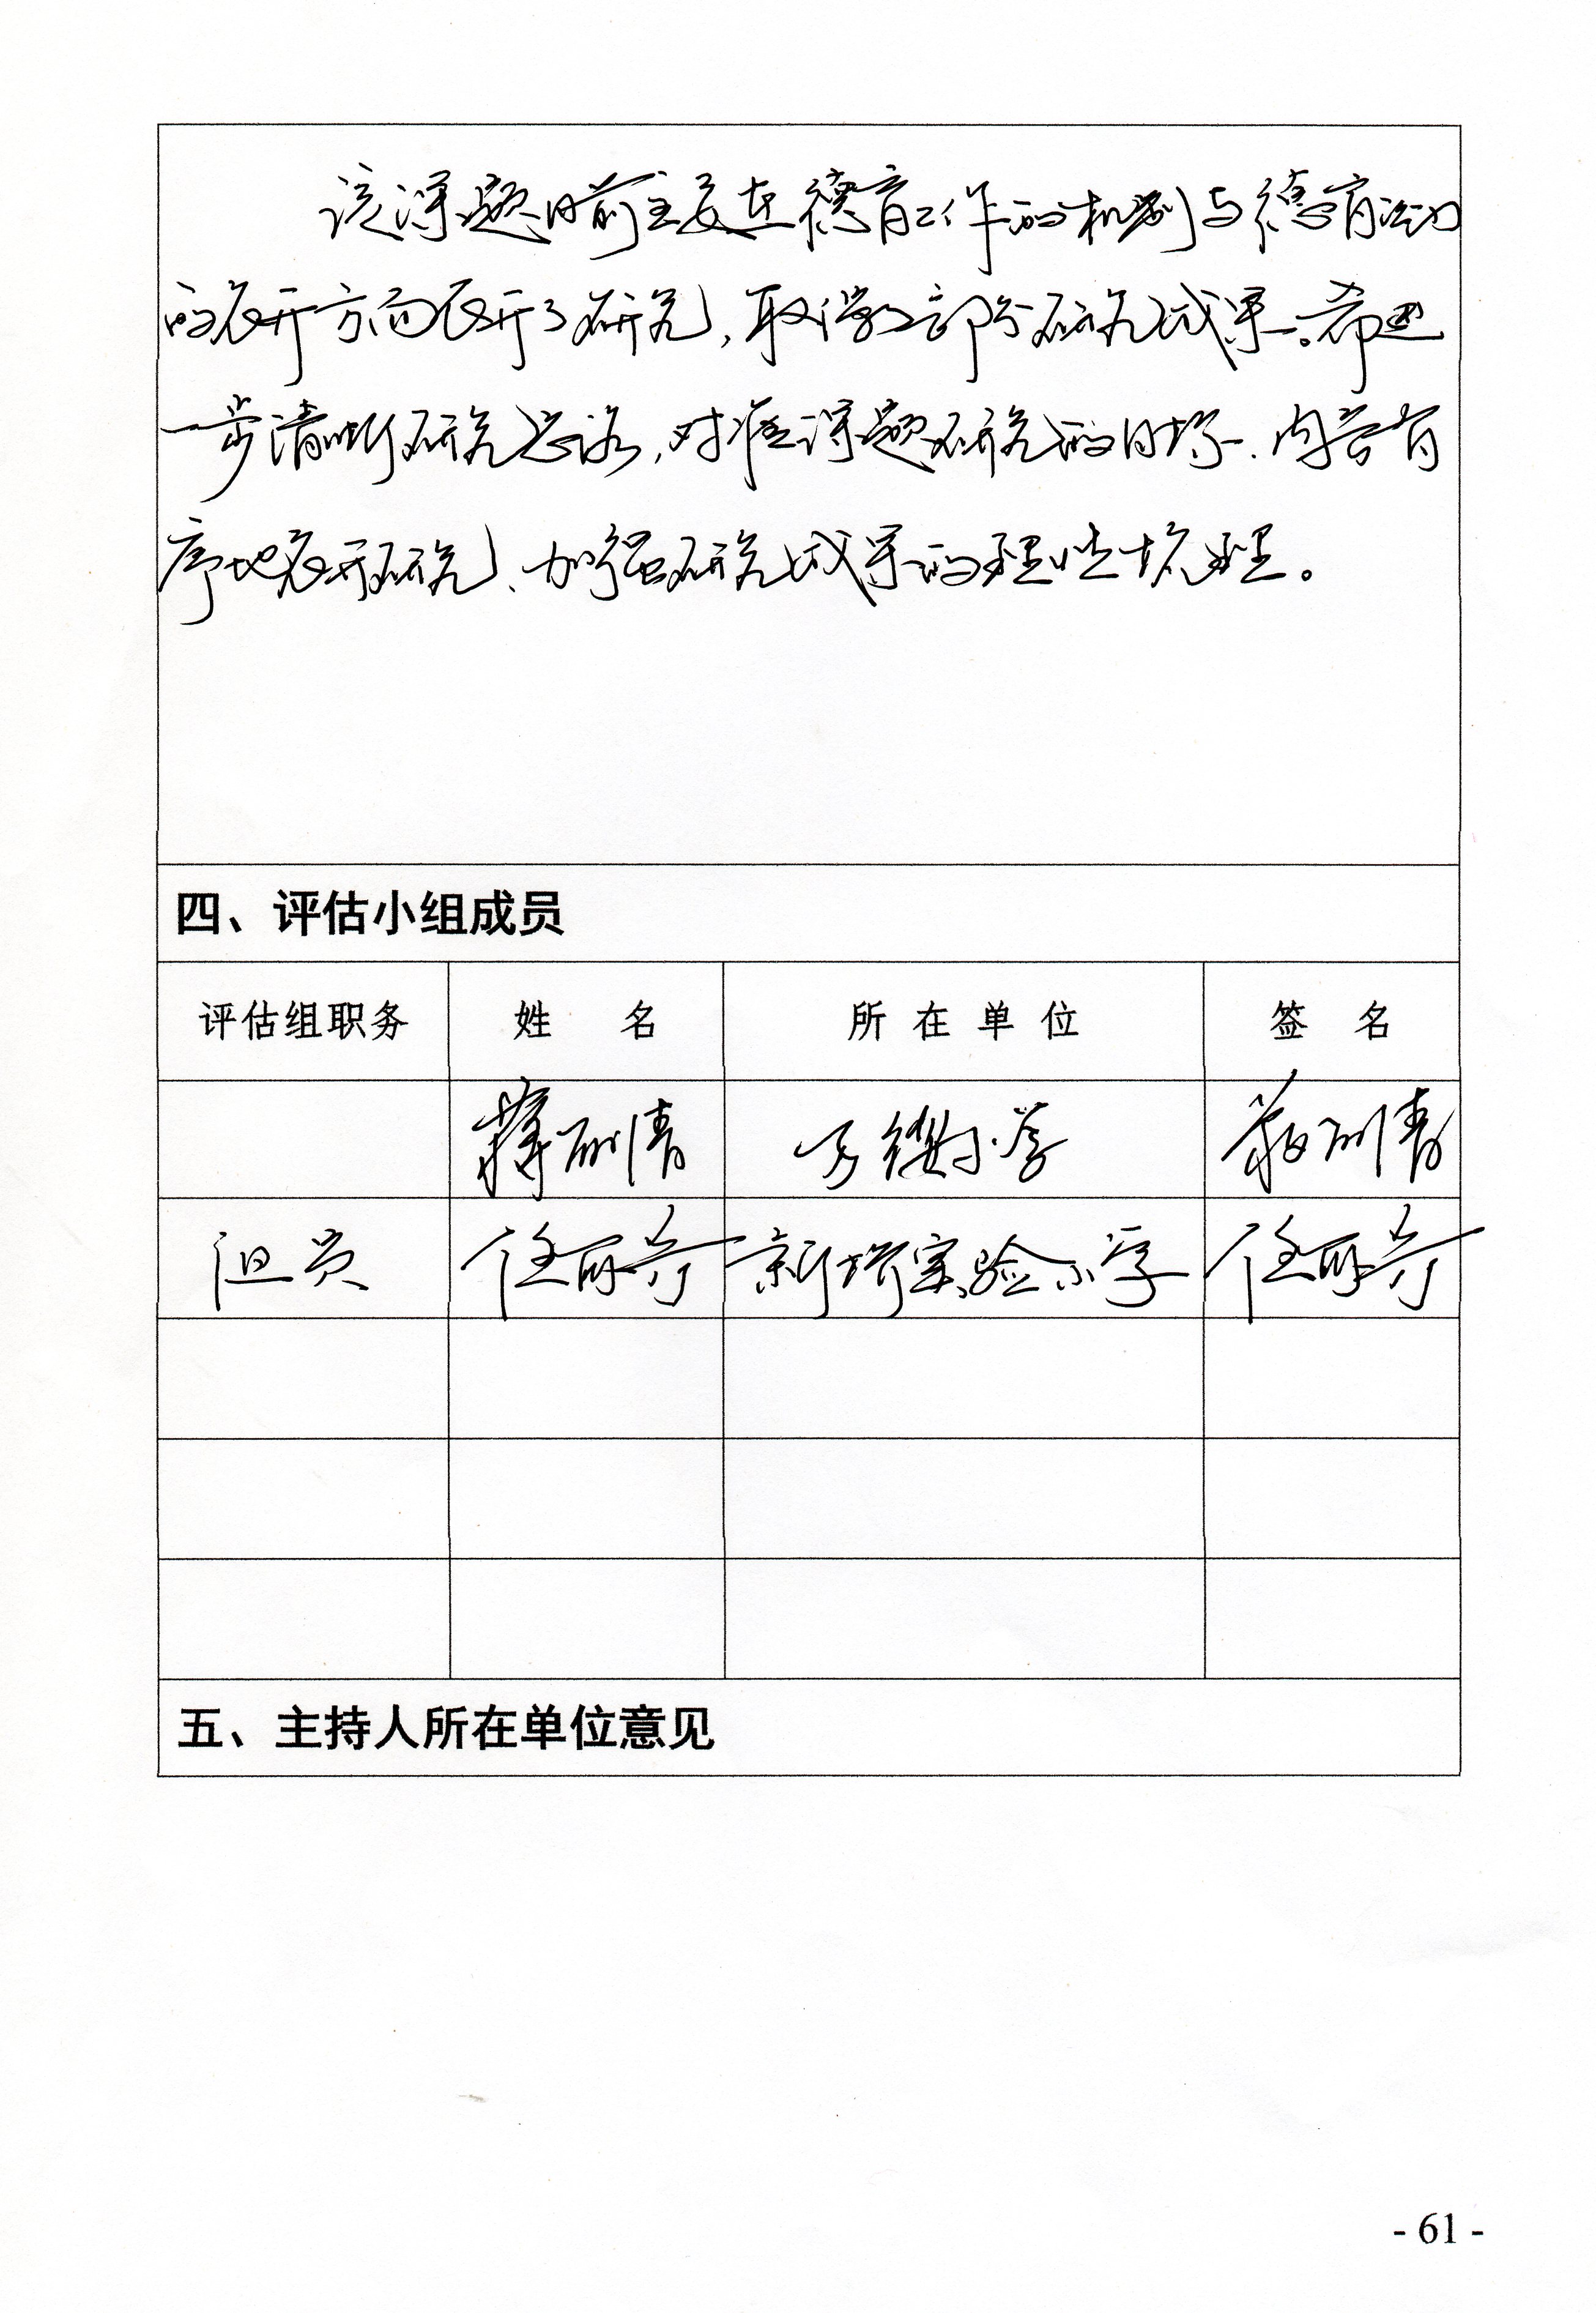 该课题目前主要在德育工作的机制与德育活动
的展开方面展开了研究，取得了部分研究成果。希进
一步清晰研究思路，对准课题研究的目标、内容有
序地展开研究、加强研究成果的理性梳理。
四、评估小组成员
评估组职务 姓 名 所 在 单 位 签 名
蒋 清 小学 蒋 清
组员 任丽芳 新桥实验小学 任丽芳
五、主持人所在单位意见
- 61 -